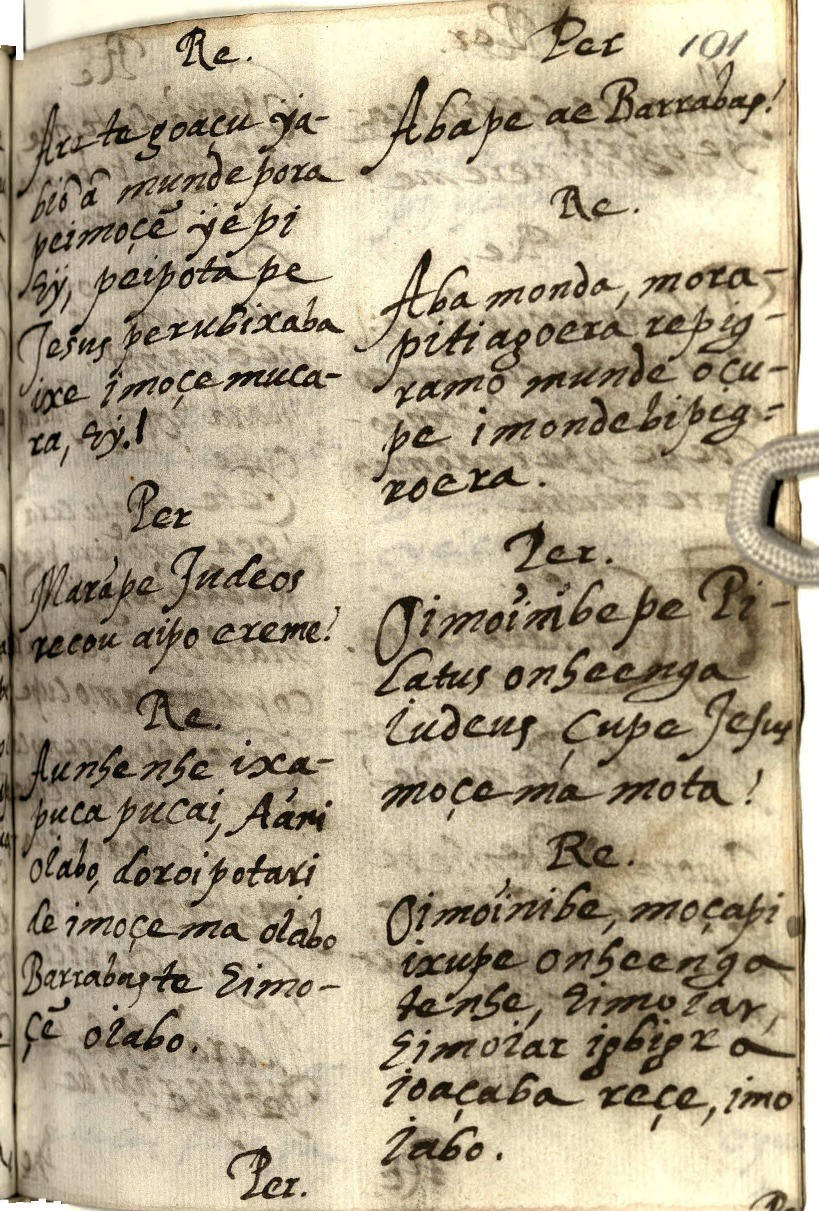 Re.
Arete goaçu ya-
bio ã munde pora
peimoçẽ yepi
Ey, peipota pe
Jesus perubixaba
ixe imoçe muca-
ra, Ey.!
Per
Marãpe Judeos
recou aipo ereme!
Re.
Aunhenhe ixa-
puca pucai, Aáni
oîabo, doroipotari
de imoçe ma oîabo
Barrabas te Eimo-
çẽ oîabo.
Per.
Per 101
Abape ae Barrabas!
Re.
Aba monda, mora-
pitiagoera repig-
ramo munde oçu-
pe imondebipig=
roera.
Per.
Oimoínibe pe Pi-
latus onheenga
Iudeus çupe Jesus
moçe ma mota!
Re.
Oimoínibe, moçapi
ixupe onheenga
tenhe, Eimoîar,
Eimoîar igbigra
ioaçaba reçe, imo
îabo.